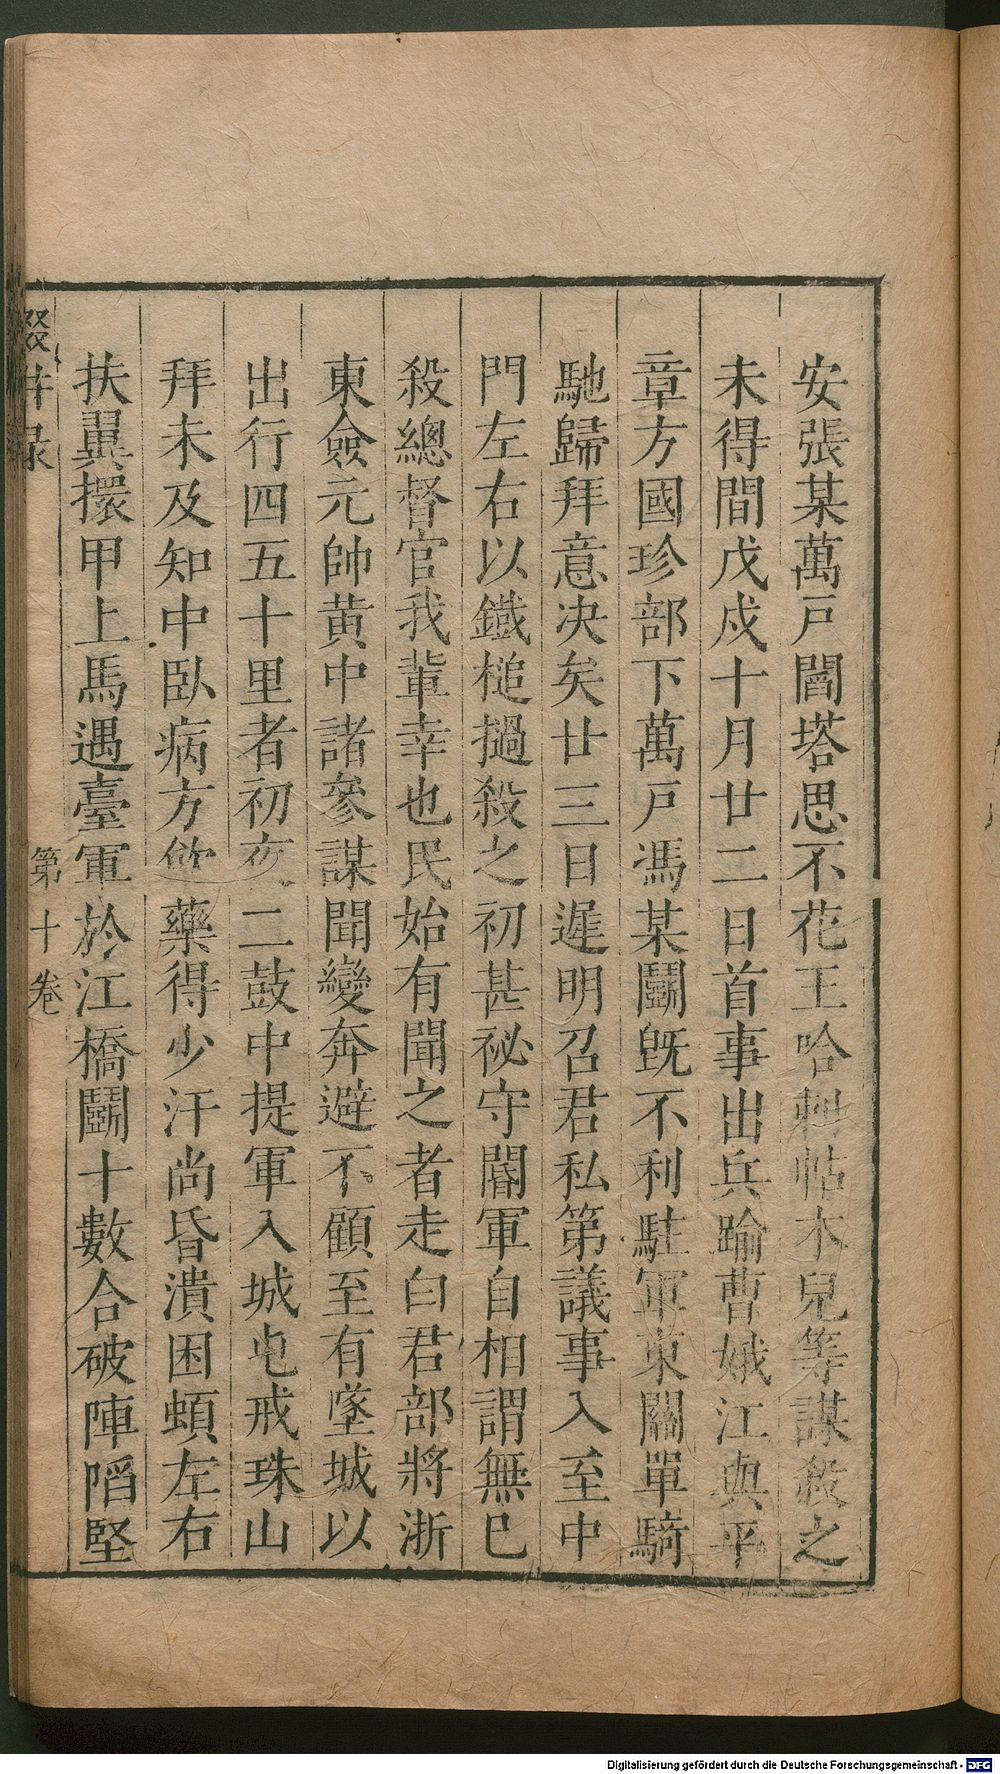 安張某萬戸闊塔思不花王哈剌帖木兒等謀殺之
未得間戊戍十月廿二日首事出兵踰曹娥江與平
章方國珍部下萬戸馮某鬭旣不利駐軍東關單騎
馳歸拜意决矣廿三日遲明召君私第議事入至中
門左右以鐵槌撾殺之初甚祕守閽軍自相謂無巳
殺總督官我輩幸也民始有聞之者走白君部將浙
東僉元帥黄中諸參謀聞變奔避不顧至有墜城以
出行四五十里者初亥二鼓中提軍入城屯戒珠山
拜未及知中臥病方飲藥得少汗尚昏潰困頓左右
扶翼擐甲上馬遇臺軍於江橋鬭十數合破陣陷堅
輟畊录 第十卷
Digitalisierung gefördert durch die Deutsche Forschungsgemeinschaft - DFG